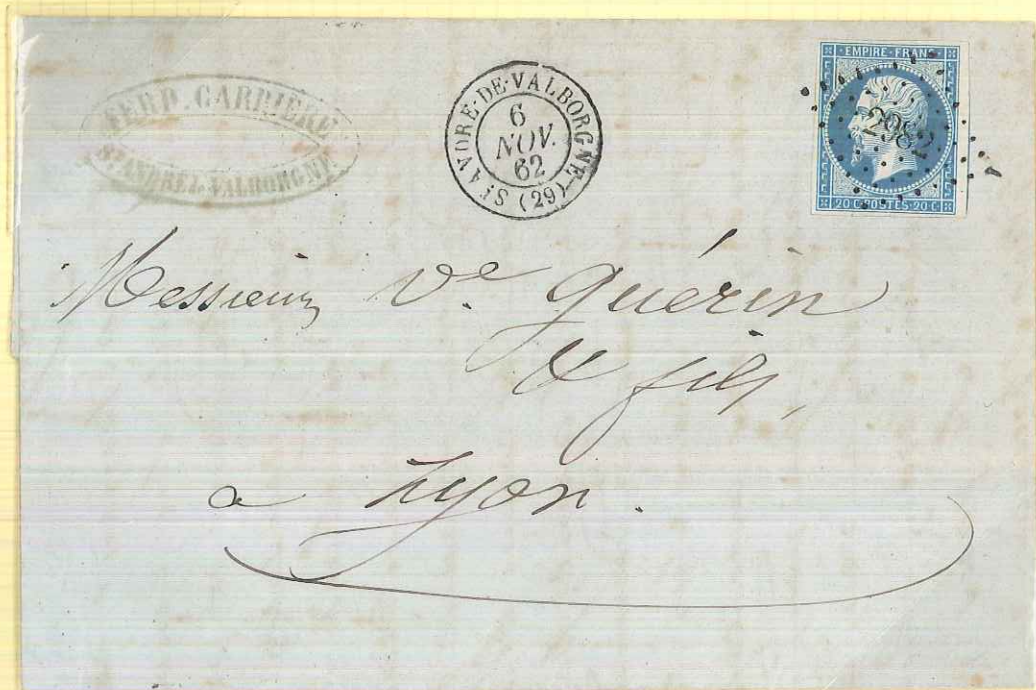 FERD. CARRIÈRE
ST ANDRÉ L VALBORGNE
ST ANDRE-DE-VALBORGNE (29)
6
NOV.
62
EMPIRE-FRANC
2982
20 C-POSTES-20 C
Messieurs Ve Guérin
& fils,
a Lyon.